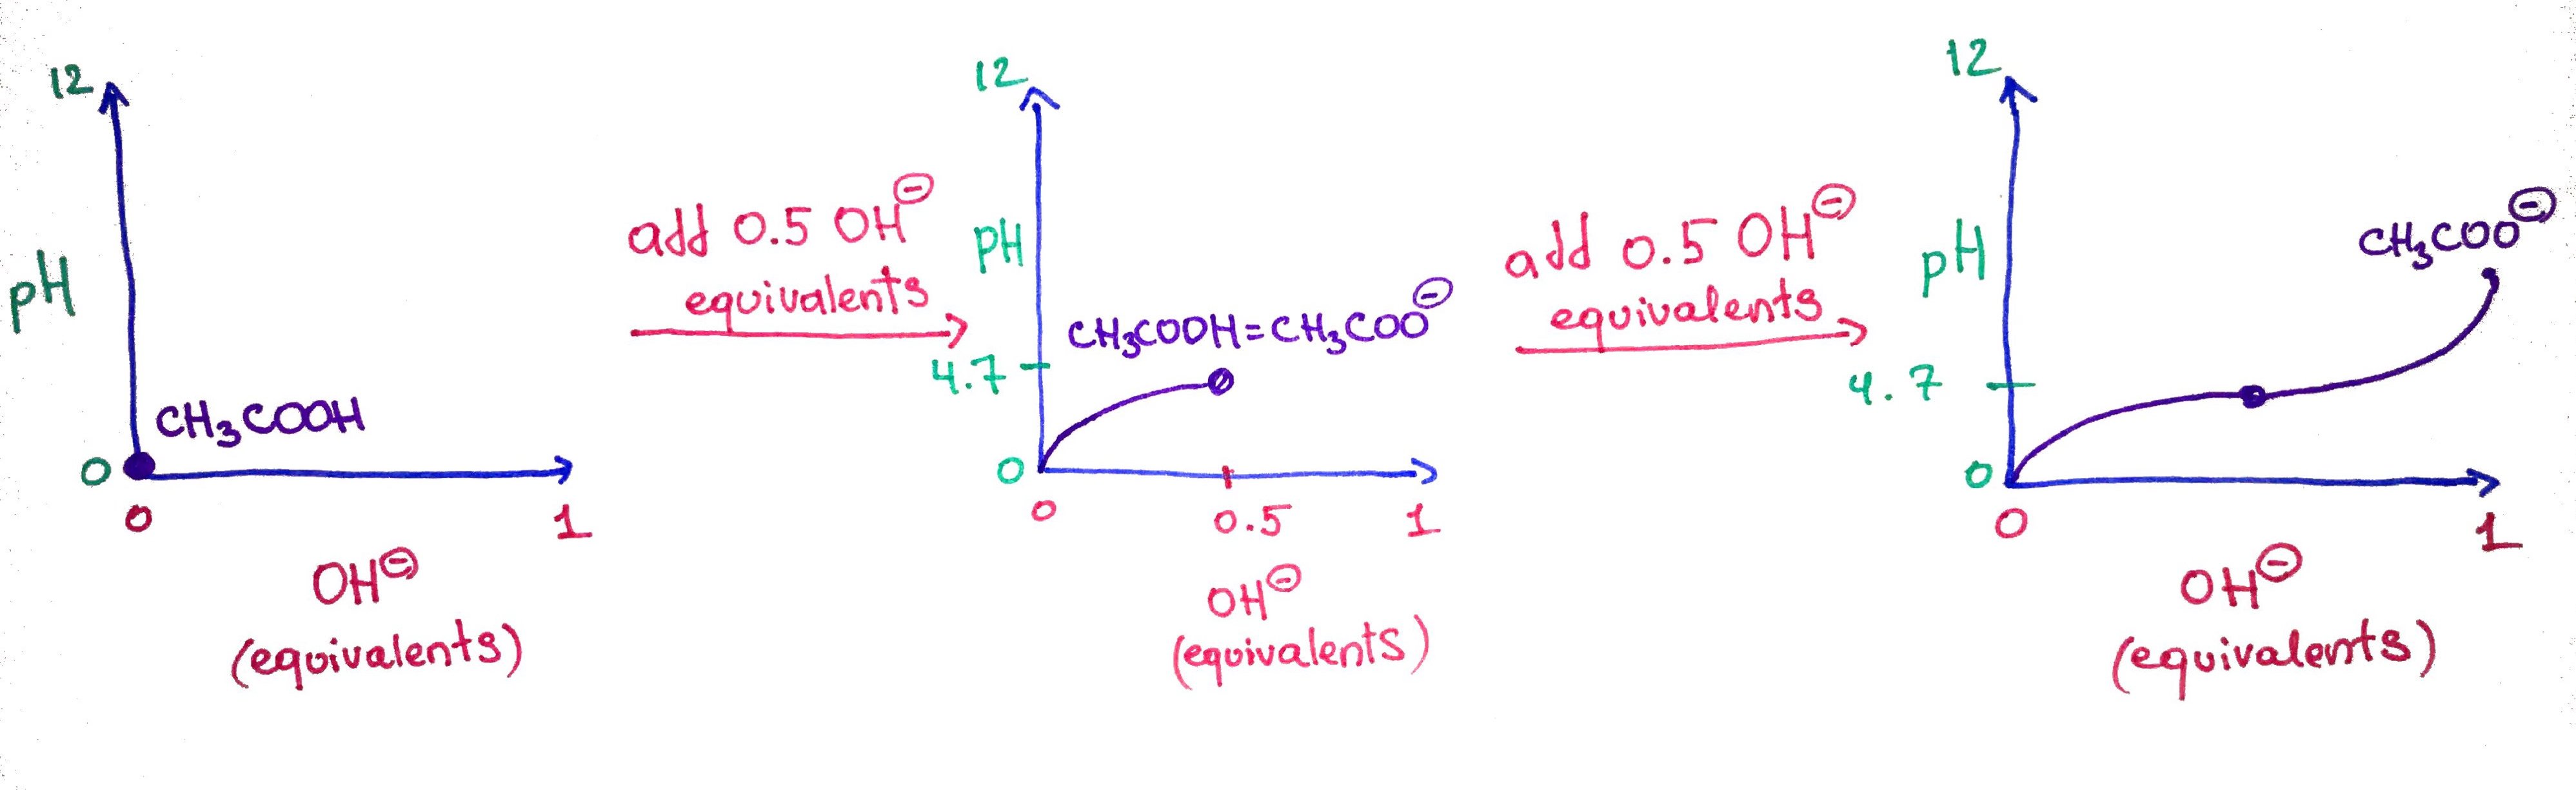 12
pH
CH₃COOH
0
0
1
OH⊖
(equivalents)
add 0.5 OH⊖
equivalents
12
pH
CH₃COOH=CH₃COO⊖
4.7
0
0
0.5
1
OH⊖
(equivalents)
add 0.5 OH⊖
equivalents
12
pH
CH₃COO⊖
4.7
0
0
1
OH⊖
(equivalents)